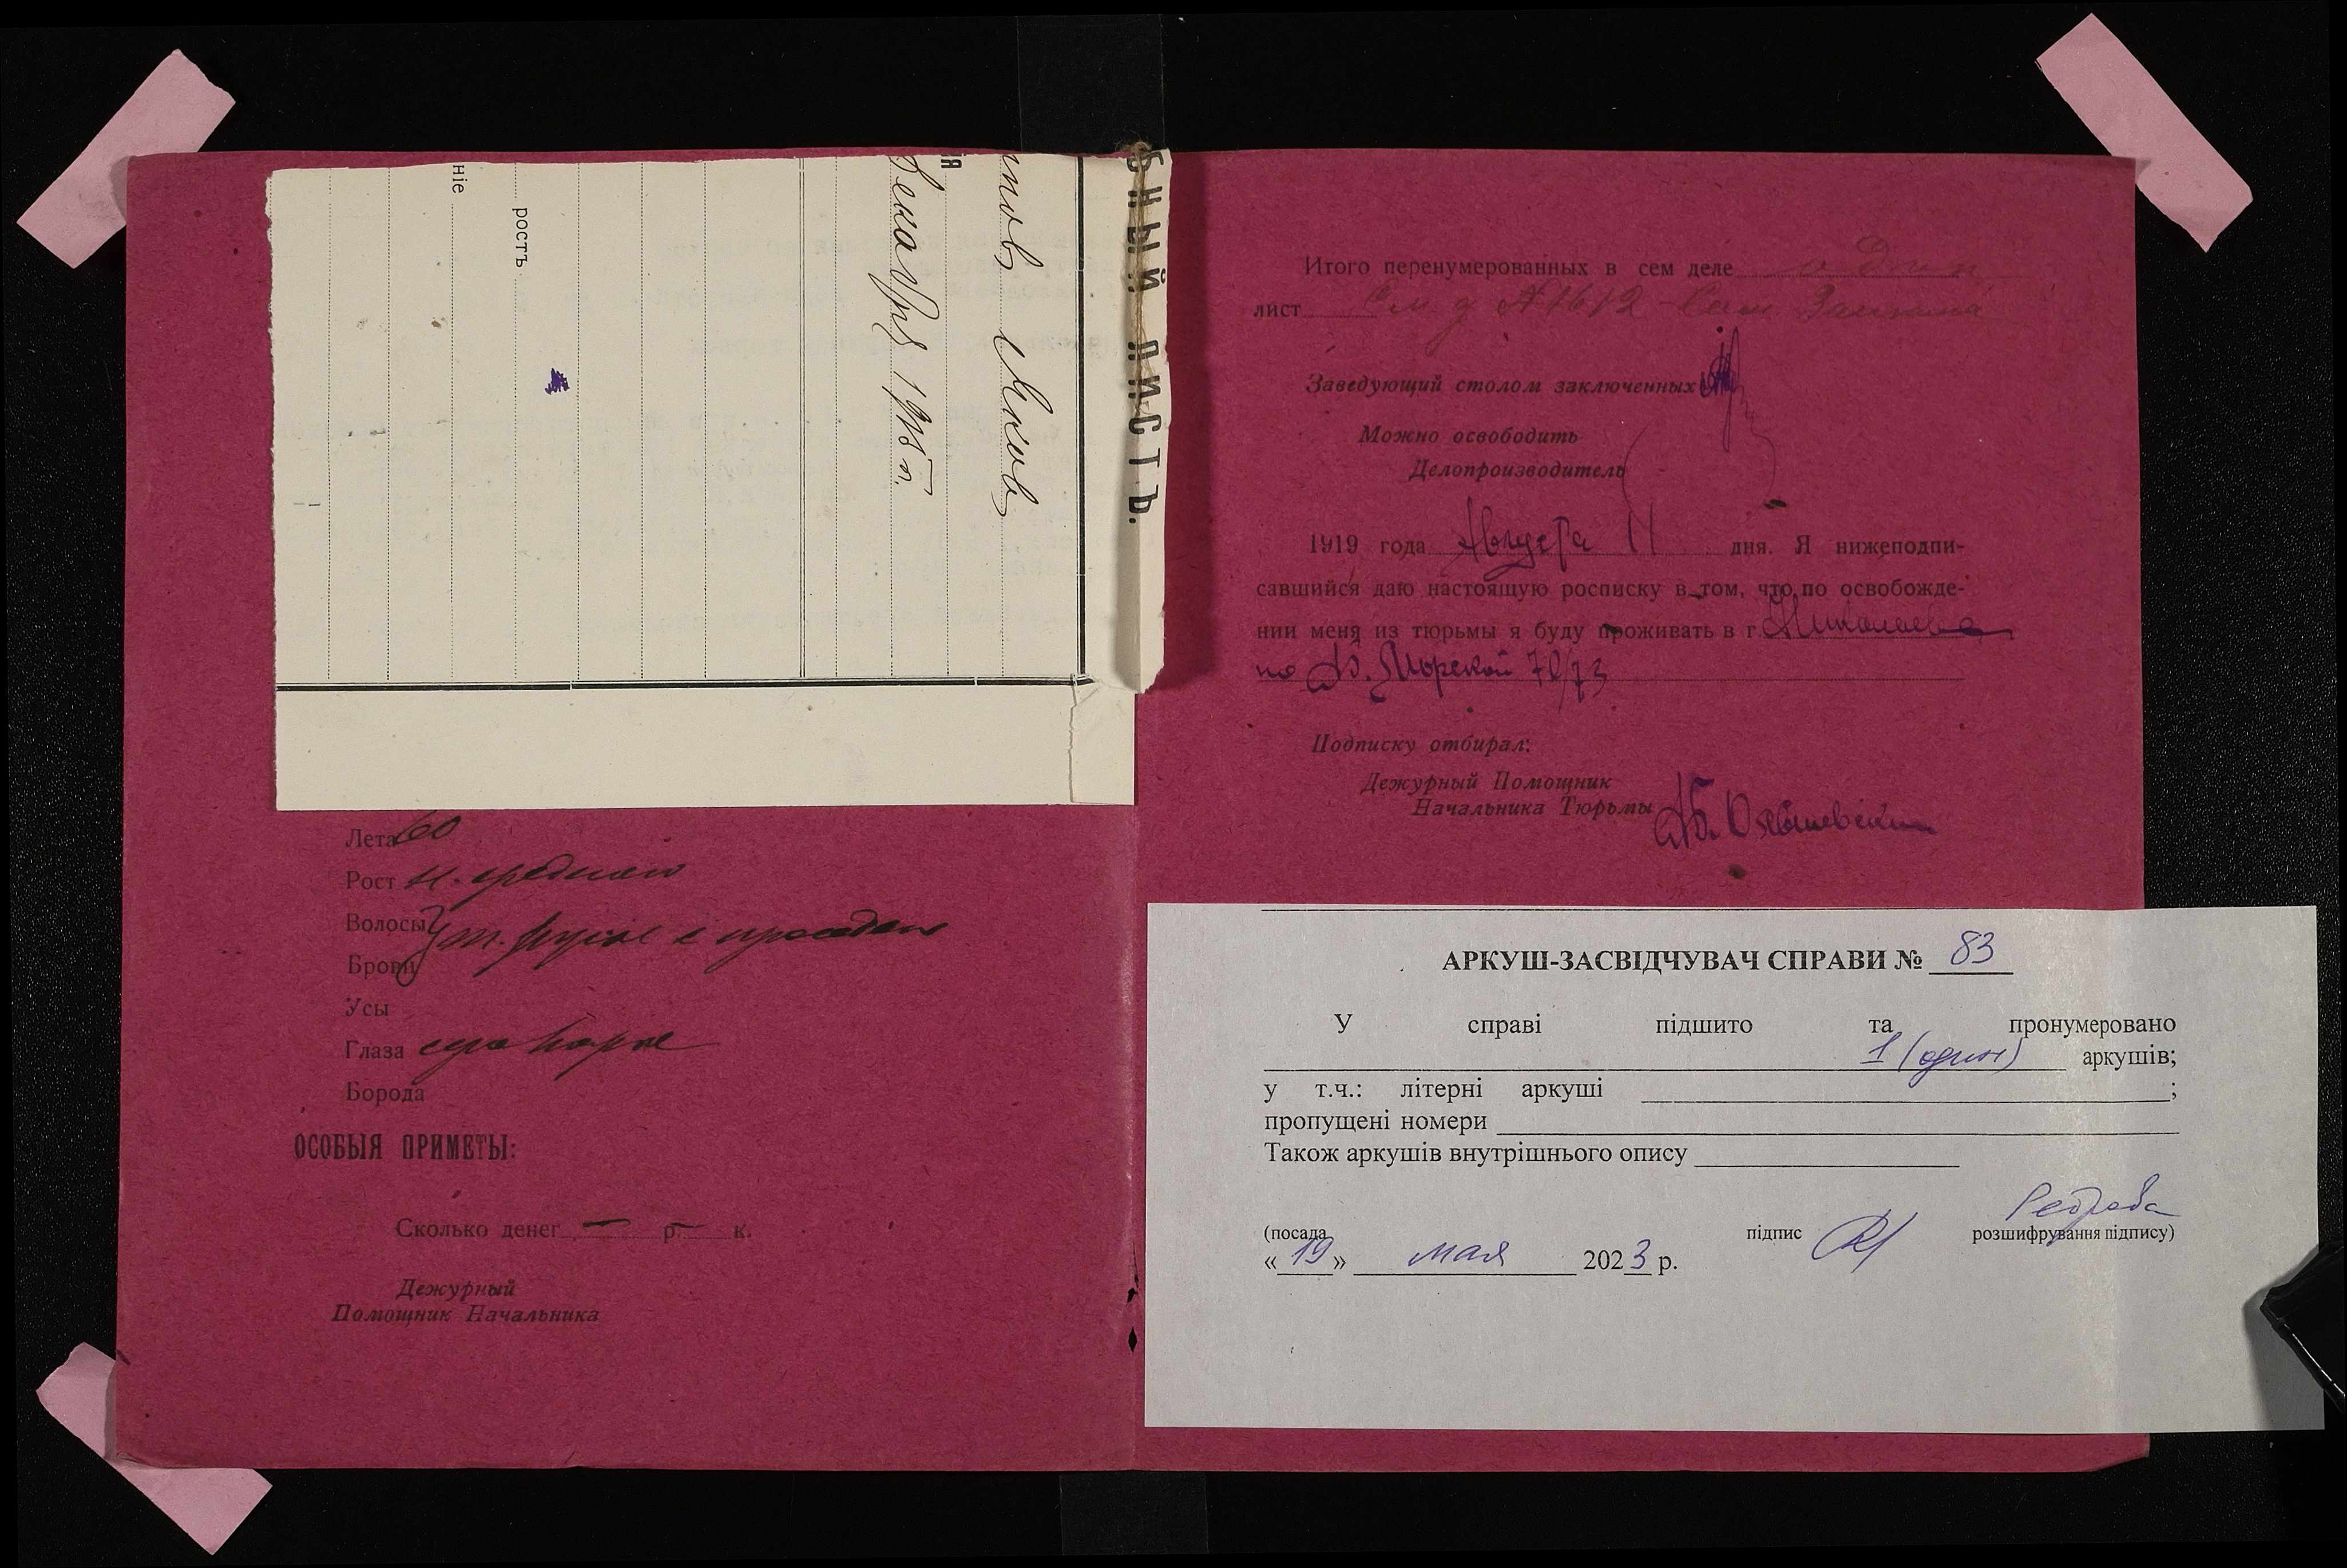 БНЫЙ ЛИСТЪ.
Яковъ
я
Декабря 1915 г.
ростъ
ніе
Лета 60
Рост н. среднего
Волосы т. русые с проседью
Брови
Усы
Глаза серо карие
Борода
ОСОБЫЯ ПРИМЕТЫ:
Сколько денег — р. — к.
Дежурный
Помощник Начальника
Итого перенумерованных в сем деле один
лист См. д № 1612
Заведующий столом заключенных
Можно освободить
Делопроизводитель
1919 года Августа 11 дня. Я нижеподпи-
савшийся даю настоящую росписку в том, что по освобожде-
нии меня из тюрьмы я буду проживать в г. Николаеве
по Б. Морской
Подписку отбирал:
Дежурный Помощник
Начальника Тюрьмы
АРКУШ-ЗАСВІДЧУВАЧ СПРАВИ № 83
У справі підшито та пронумеровано
1 (один) аркушів;
у т.ч.: літерні аркуші ;
пропущені номери
Також аркушів внутрішнього опису
(посада підпис розшифрування підпису)
« 19 » мая 2023 р.